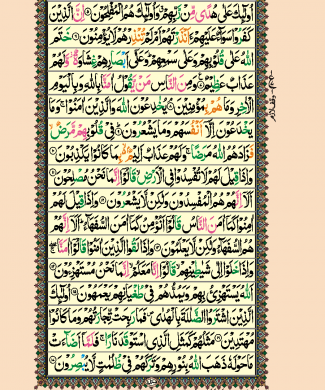 اُولٰٓئِكَ عَلٰى هُدًى مِّنْ رَّبِّهِمْ وَاُولٰٓئِكَ هُمُ الْمُفْلِحُوْنَ ۝ اِنَّ الَّذِيْنَ
كَفَرُوْا سَوَآءٌ عَلَيْهِمْ ءَاَنْذَرْتَهُمْ اَمْ لَمْ تُنْذِرْهُمْ لَا يُؤْمِنُوْنَ ۝ خَتَمَ
اللّٰهُ عَلٰى قُلُوْبِهِمْ وَعَلٰى سَمْعِهِمْ وَعَلٰٓى اَبْصَارِهِمْ غِشَاوَةٌ وَّلَهُمْ
عَذَابٌ عَظِيْمٌ ۝ وَمِنَ النَّاسِ مَنْ يَّقُوْلُ اٰمَنَّا بِاللّٰهِ وَبِالْيَوْمِ
الْاٰخِرِ وَمَا هُمْ بِمُؤْمِنِيْنَ ۝ يُخٰدِعُوْنَ اللّٰهَ وَالَّذِيْنَ اٰمَنُوْا وَمَا
يَخْدَعُوْنَ اِلَّآ اَنْفُسَهُمْ وَمَا يَشْعُرُوْنَ ۝ فِيْ قُلُوْبِهِمْ مَّرَضٌ
فَزَادَهُمُ اللّٰهُ مَرَضًا وَلَهُمْ عَذَابٌ اَلِيْمٌۢ بِمَا كَانُوْا يَكْذِبُوْنَ ۝
وَاِذَا قِيْلَ لَهُمْ لَا تُفْسِدُوْا فِى الْاَرْضِ قَالُوْٓا اِنَّمَا نَحْنُ مُصْلِحُوْنَ ۝
اَلَآ اِنَّهُمْ هُمُ الْمُفْسِدُوْنَ وَلٰكِنْ لَّا يَشْعُرُوْنَ ۝ وَاِذَا قِيْلَ لَهُمْ
اٰمِنُوْا كَمَآ اٰمَنَ النَّاسُ قَالُوْٓا اَنُؤْمِنُ كَمَآ اٰمَنَ السُّفَهَآءُ اَلَآ اِنَّهُمْ
هُمُ السُّفَهَآءُ وَلٰكِنْ لَّا يَعْلَمُوْنَ ۝ وَاِذَا لَقُوا الَّذِيْنَ اٰمَنُوْا قَالُوْٓا اٰمَنَّا
وَاِذَا خَلَوْا اِلٰى شَيٰطِيْنِهِمْ قَالُوْٓا اِنَّا مَعَكُمْ اِنَّمَا نَحْنُ مُسْتَهْزِءُوْنَ ۝
اَللّٰهُ يَسْتَهْزِئُ بِهِمْ وَيَمُدُّهُمْ فِيْ طُغْيَانِهِمْ يَعْمَهُوْنَ ۝ اُولٰٓئِكَ
الَّذِيْنَ اشْتَرَوُا الضَّلٰلَةَ بِالْهُدٰى فَمَا رَبِحَتْ تِّجَارَتُهُمْ وَمَا كَانُوْا
مُهْتَدِيْنَ ۝ مَثَلُهُمْ كَمَثَلِ الَّذِى اسْتَوْقَدَ نَارًا فَلَمَّآ اَضَآءَتْ
مَا حَوْلَهٗ ذَهَبَ اللّٰهُ بِنُوْرِهِمْ وَتَرَكَهُمْ فِيْ ظُلُمٰتٍ لَّا يُبْصِرُوْنَ ۝